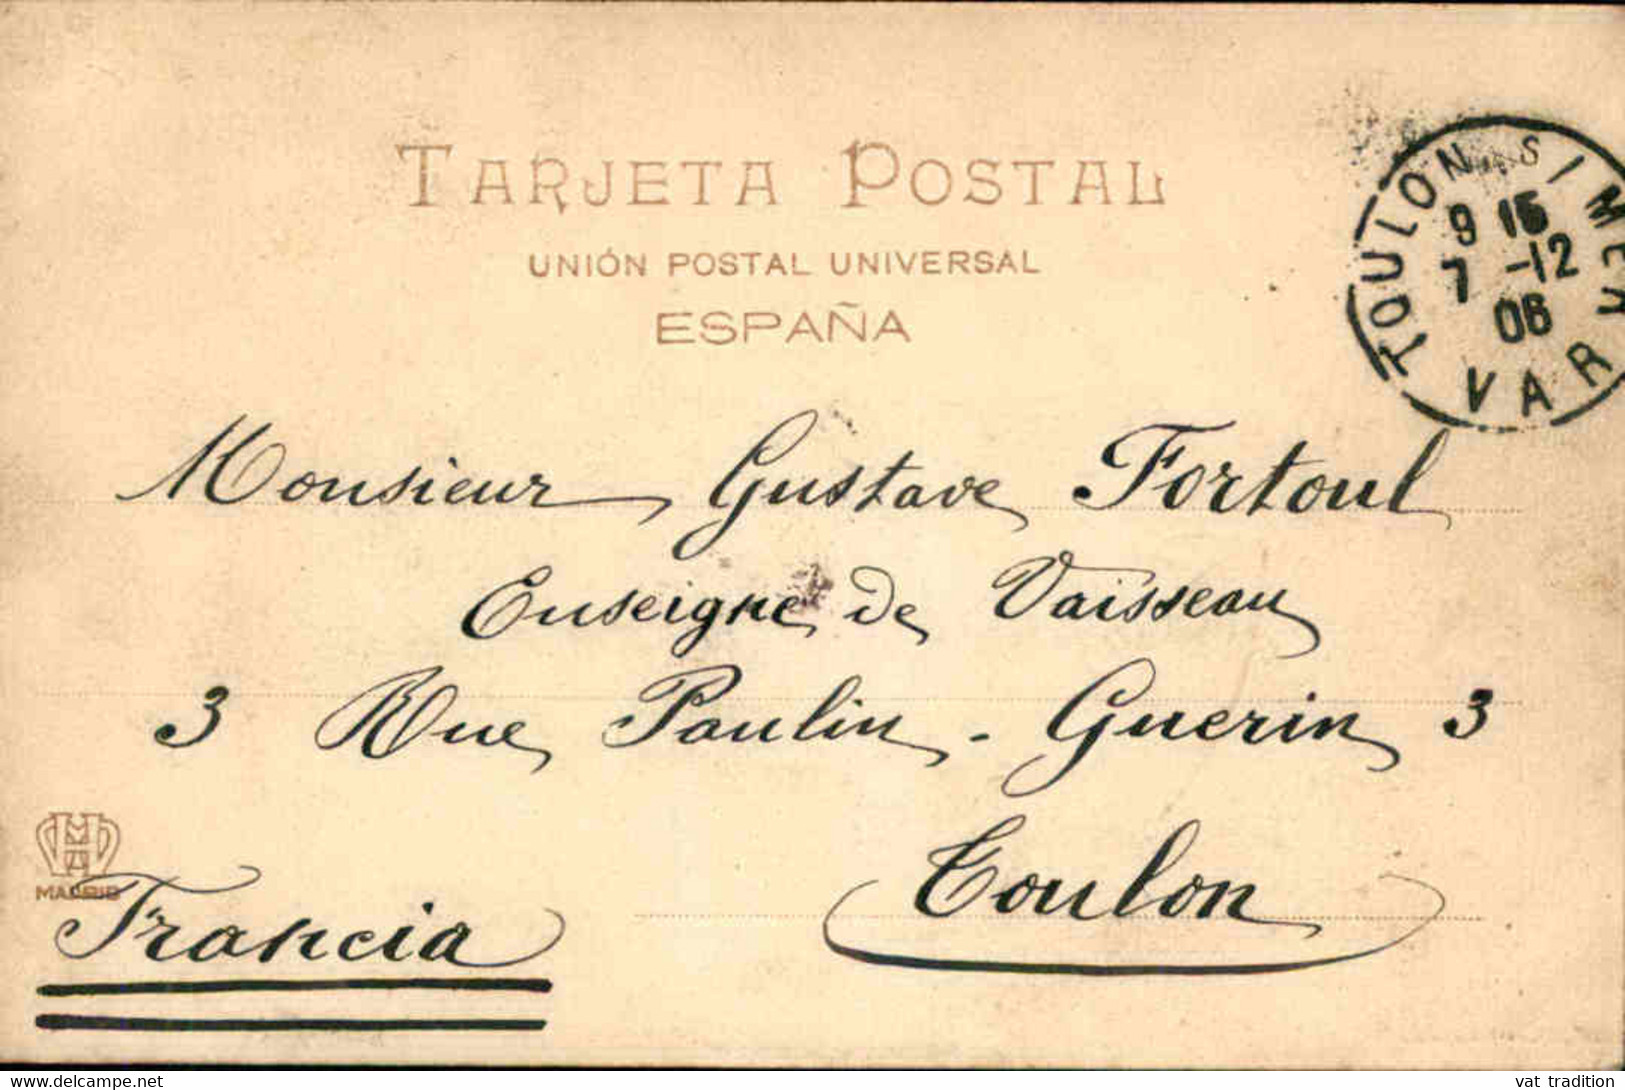 TARJETA POSTAL
UNIÓN POSTAL UNIVERSAL
ESPAÑA
TOULON S/ MER
9 15
7 -12
06
VAR
Monsieur Gustave Fortoul
Enseigne de Vaisseau
3 Rue Paulin - Guerin 3
Toulon
HM
A
MADRID
Francia
delcampe.net
vat_tradition